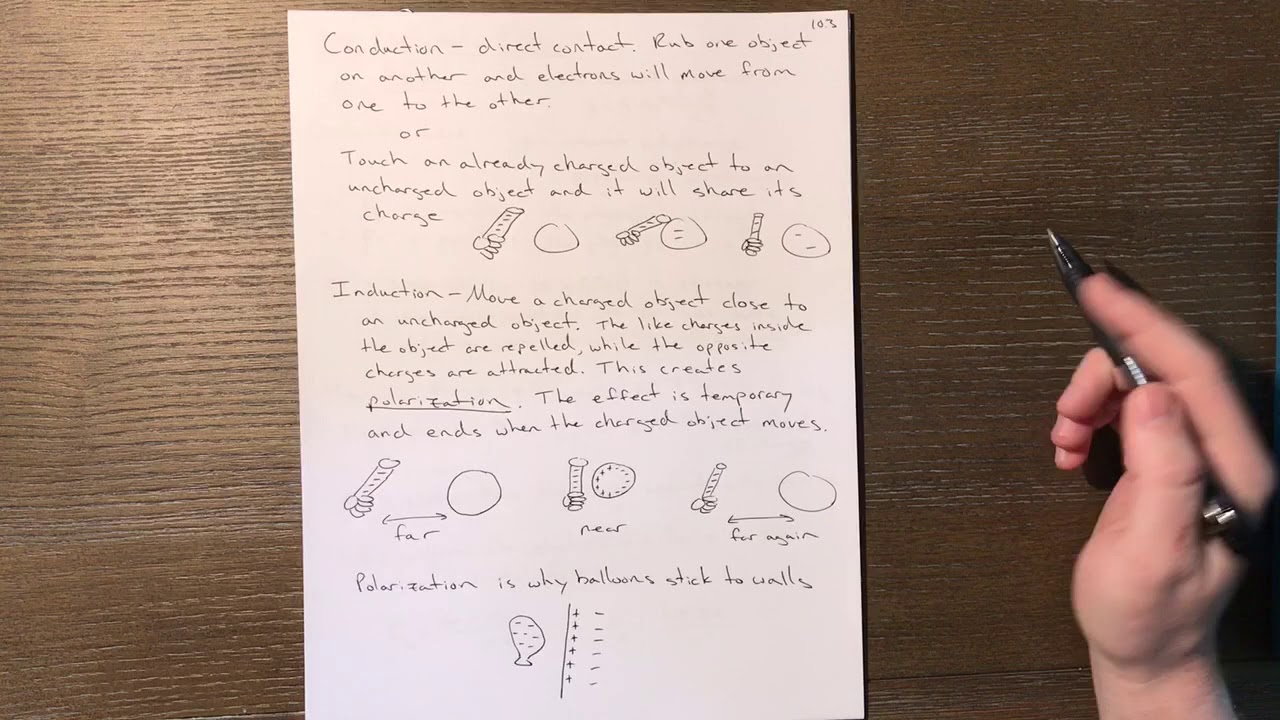 103
Conduction - direct contact. Rub one object
on another and electrons will move from
one to the other.
or
Touch an already charged object to an
uncharged object and it will share its
charge
Induction - Move a charged object close to
an uncharged object. The like charges inside
the object are repelled, while the opposite
charges are attracted. This creates
polarization. The effect is temporary
and ends when the charged object moves.
far near far again
Polarization is why balloons stick to walls
+ -
+ -
+ -
+ -
+ -
+ -